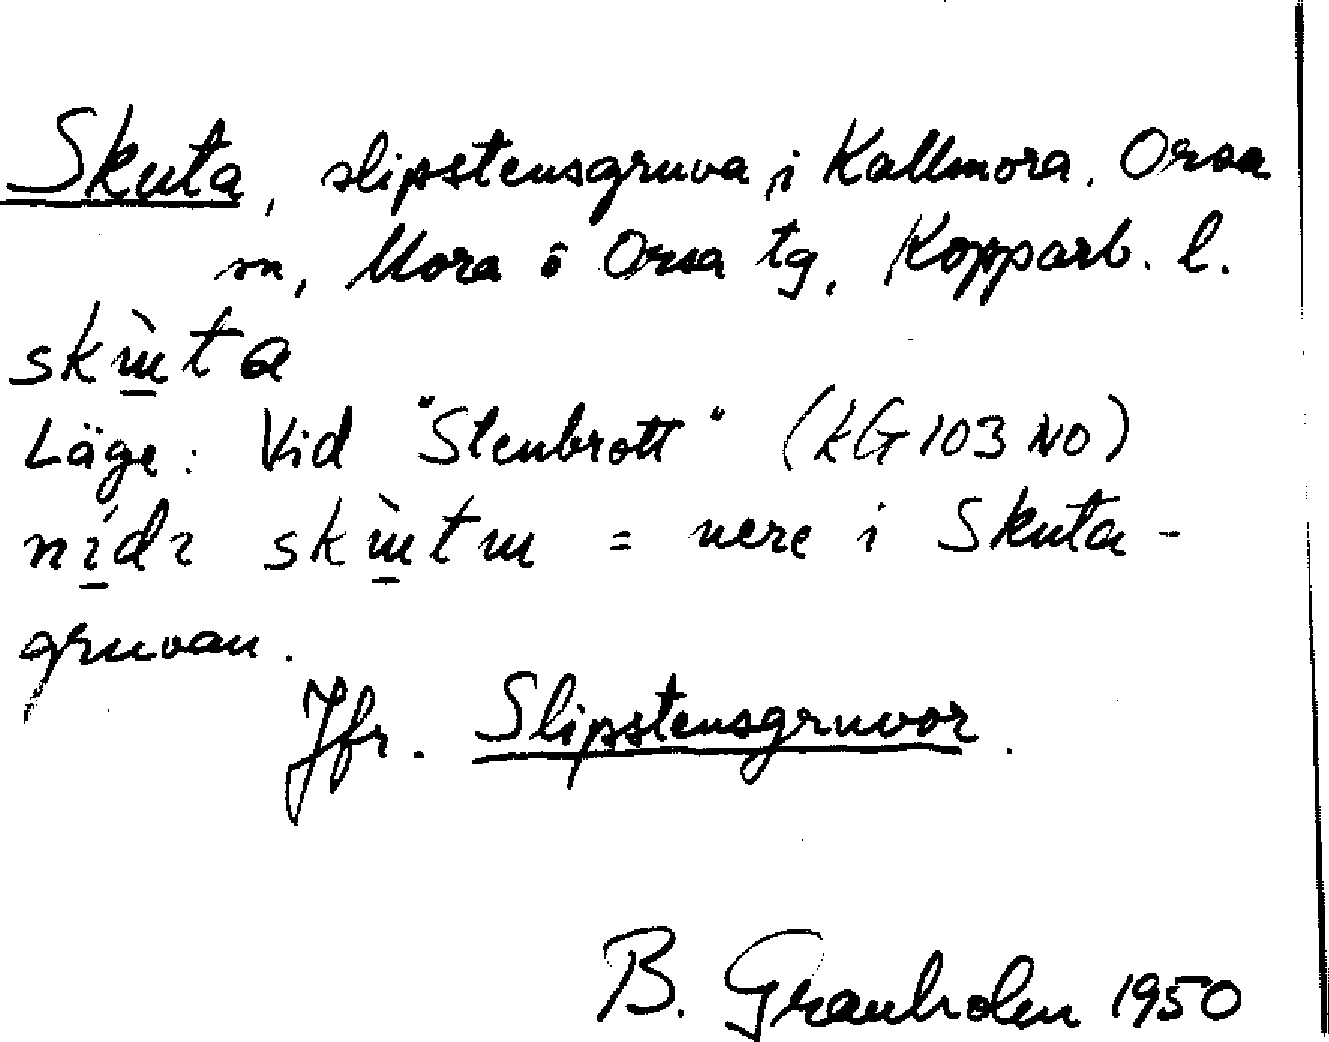 Skuta, slipstensgruva i Kallmora, Orsa
sn, Mora o Orsa tg, Kopparb. l.
skùta
Läge: Vid "Stenbrott" (KG 103 NO)
nídɩ skùtm = nere i Skuta-
gruvan.
Jfr. Slipstensgruvor.
B. Granholm 1950